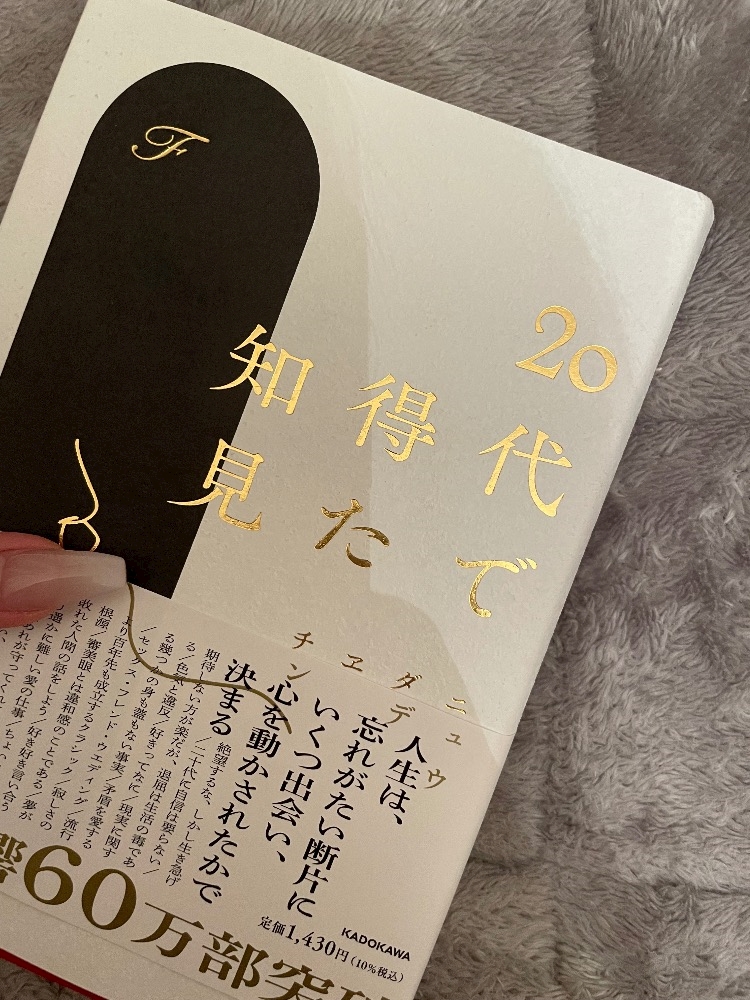 F
20代で
得た
知見
ニュウ
ダデ
ヱ
チン
人生は、
忘れがたい断片に
いくつ出会い、
心を動かされたかで
決まる
絶望するな、しかし生き急げ
/二十代に自信は要らない/
期待しない方が楽だが、退屈は生活の毒であ
る/色気と違反/好きってなに/現実に関す
る幾つかの身も蓋もない事実/矛盾を愛する
/セックス・フレンド・ウエディング/流行
より百年先も成立するクラシック/寂しさの
根源/審美眼とは違和感のことである/夢が
敗れた人間の話をしよう/好き好き言い合う
り遥かに難しい愛の仕事/
れが守ってくれ
響60万部突破
KADOKAWA
定価1,430円(10%税込)